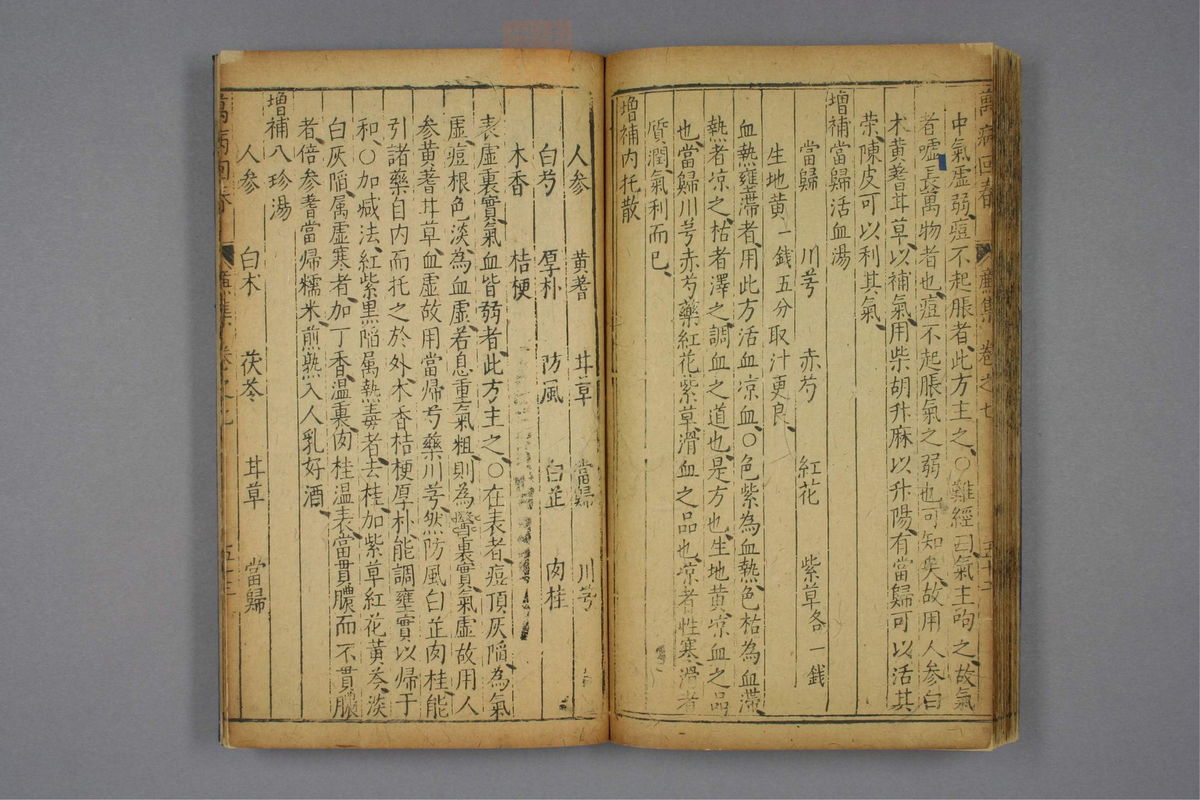 萬病回春　麻集　卷之七　五十二
中氣虛弱、痘不起脹者、此方主之、○難經曰、氣主呴之、故氣
者噓長萬物者也、痘不起脹、氣之弱也可知矣、故用人参白
术黃蓍甘草、以補氣、用柴胡升麻以升陽、有當歸可以活其
荣、陳皮可以利其氣、
增補當歸活血湯
當歸　川芎　赤芍　紅花　紫草各一錢
生地黄一錢五分取汁更良、
血熱壅滯者、用此方活血凉血、○色紫為血熱、色枯為血滯、
熱者凉之、枯者澤之、調血之道也、是方也、生地黄、凉血之品
也、當歸川芎赤芍藥紅花紫草、滑血之品也、凉者性寒、滑者
質潤、氣利而已、
增補内托散
人参　黄蓍　甘草　當歸　川芎
白芍　厚朴　防風　白芷　肉桂
木香　桔梗
表虛裏實、氣血皆弱者、此方主之、○在表者、痘頂灰陷、為氣
虛、痘根色淡、為血虛、若息重氣粗、則為裏實、氣虛故用人
参黄蓍甘草、血虛故用當帰芍藥川芎、然防風白芷肉桂、能
引諸藥自内而托之於外、木香桔梗厚朴、能調壅實以帰于
和、○加减法、紅紫黑陷属熱毒者、去桂、加紫草紅花黄芩、淡
白灰陷、属虛寒者、加丁香、溫裏、肉桂溫表、當貫膿而不貫膿
者、倍参蓍當帰糯米、煎熟入人乳好酒、
增補八珍湯
人参　白术　茯苓　甘草　當歸
萬病回春　麻集　卷之七　五十三